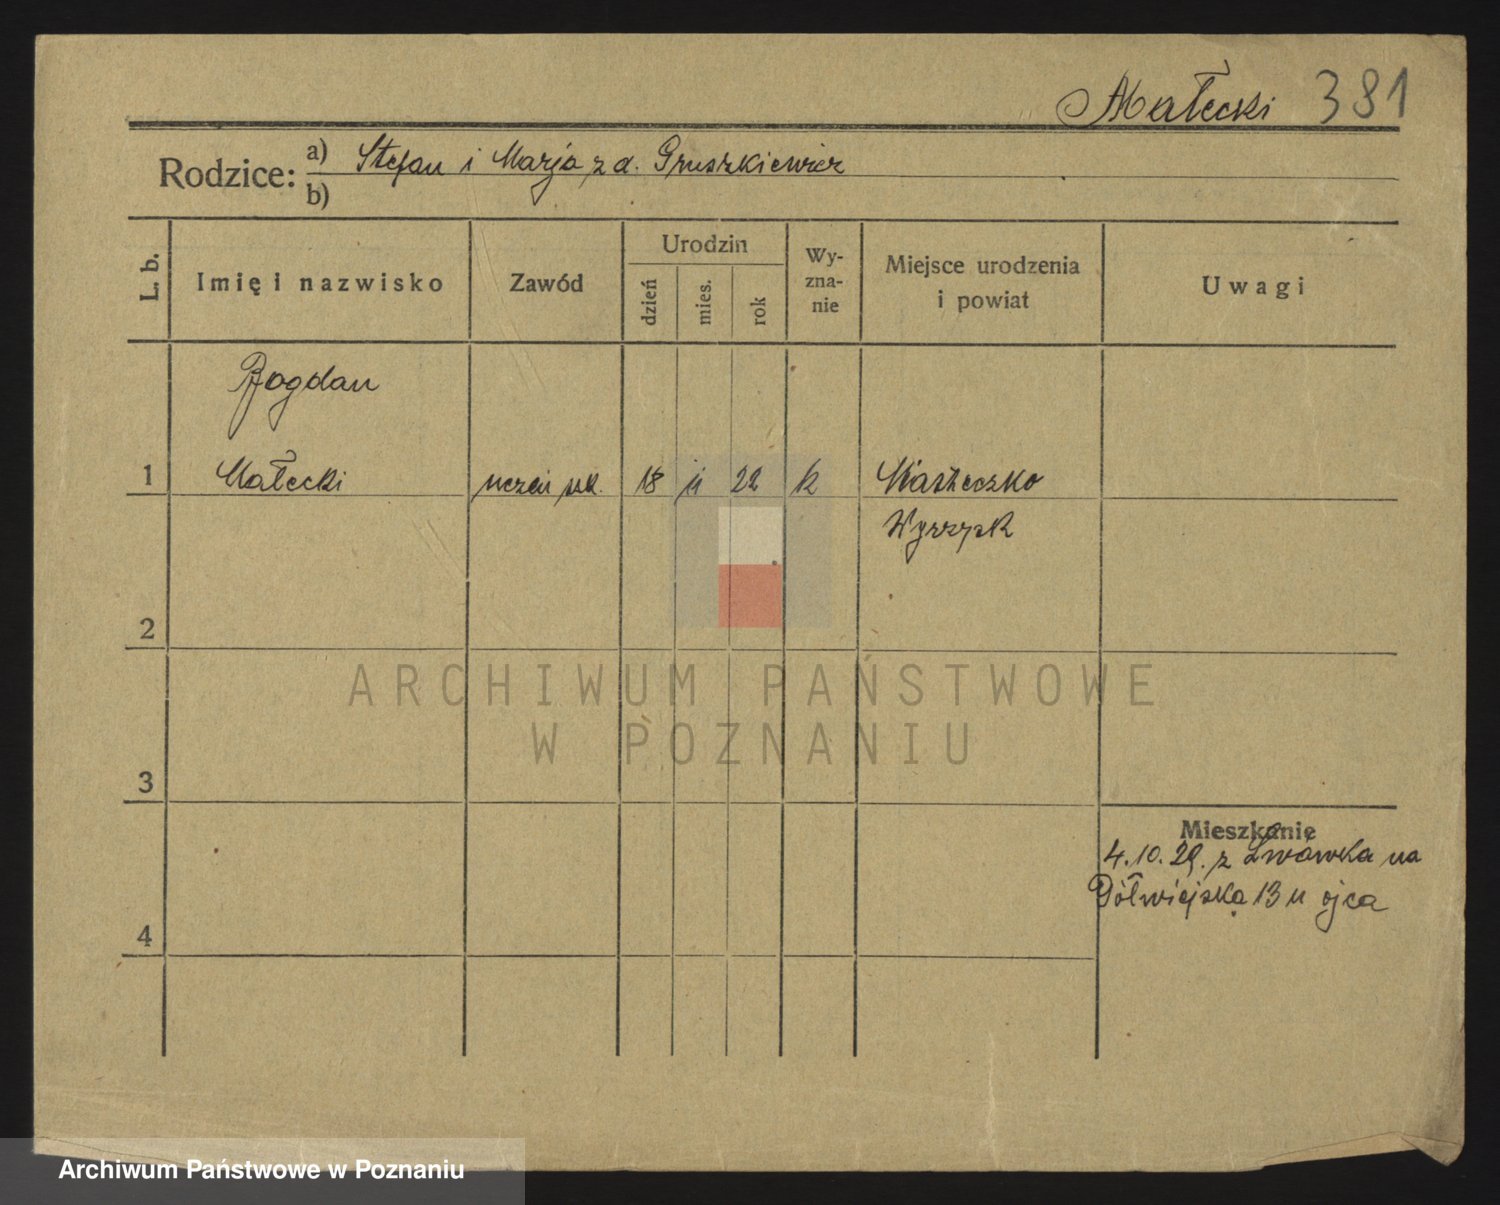 Małecki 381
Rodzice: a) Stefan i Marja z d. Gruszkiewicz
b)
L. b.
Imię i nazwisko
Zawód
Urodzin
dzień
mies.
rok
Wy-
zna-
nie
Miejsce urodzenia
i powiat
Uwagi
Bogdan
1 Małecki uczeń szk. 18 11 22 k Miasteczko
Wyrzysk
2
3
4
Mieszkanie
4.10.29. z Lwówka na
Półwiejska 13 u ojca
ARCHIWUM PAŃSTWOWE
W POZNANIU
Archiwum Państwowe w Poznaniu